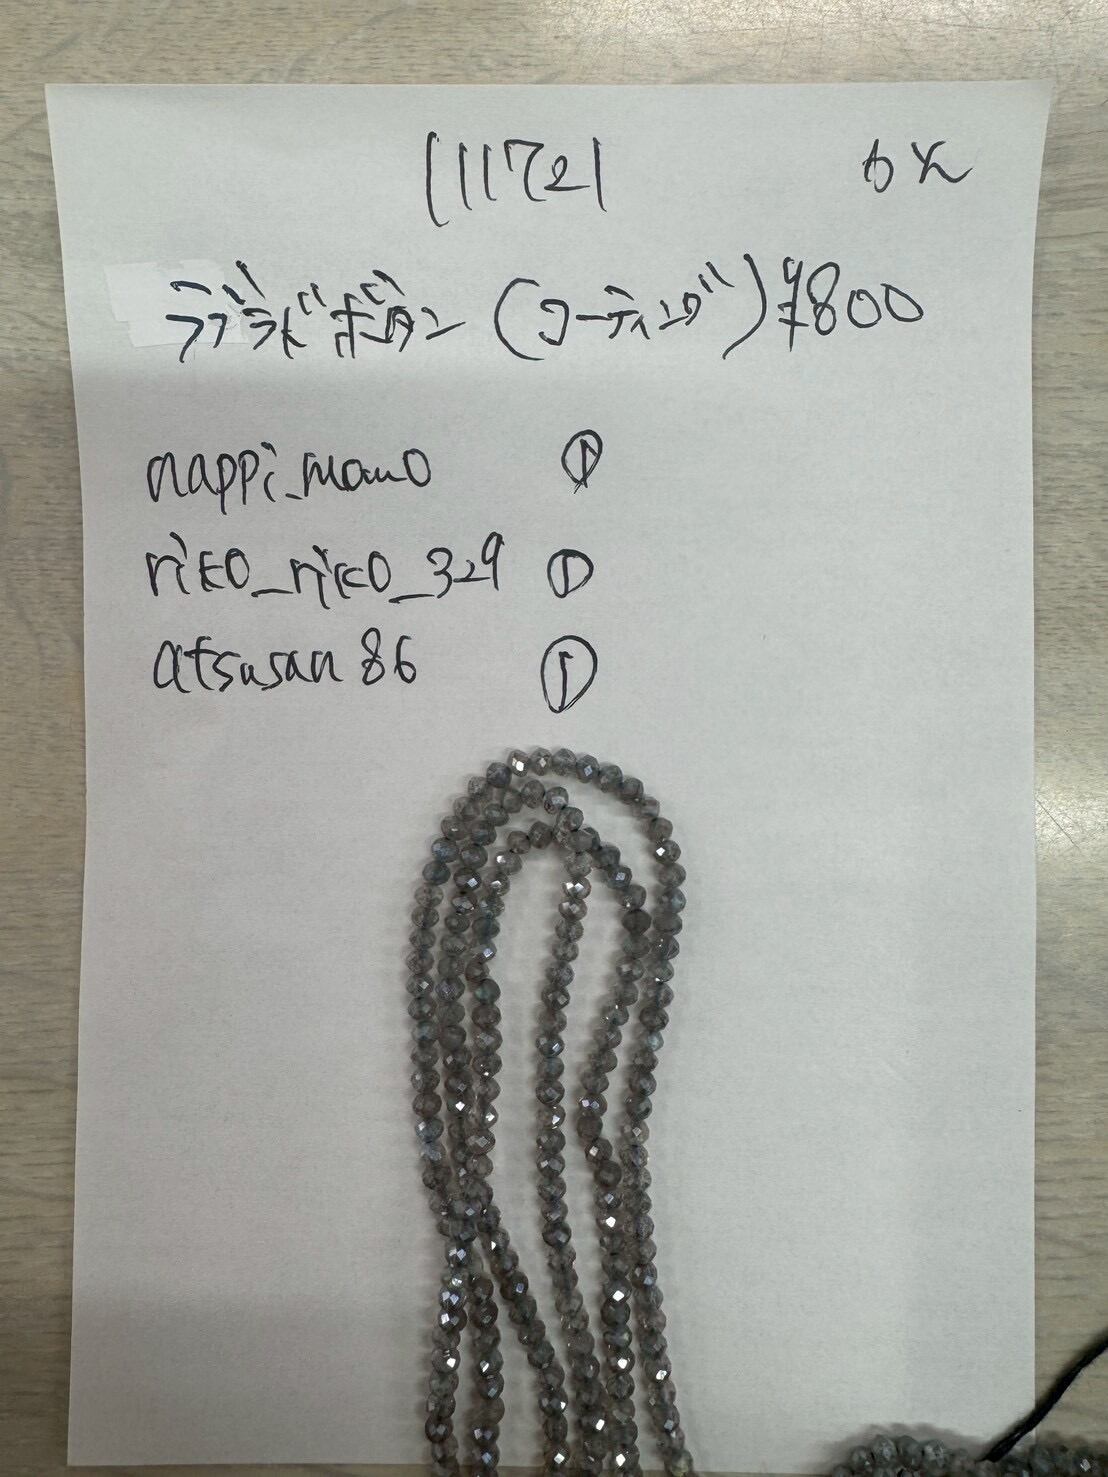 111721
ラブラドボタン (コーティング) ¥800
nappi_mano ①
riko_riko_329 ①
atsusan86 ①